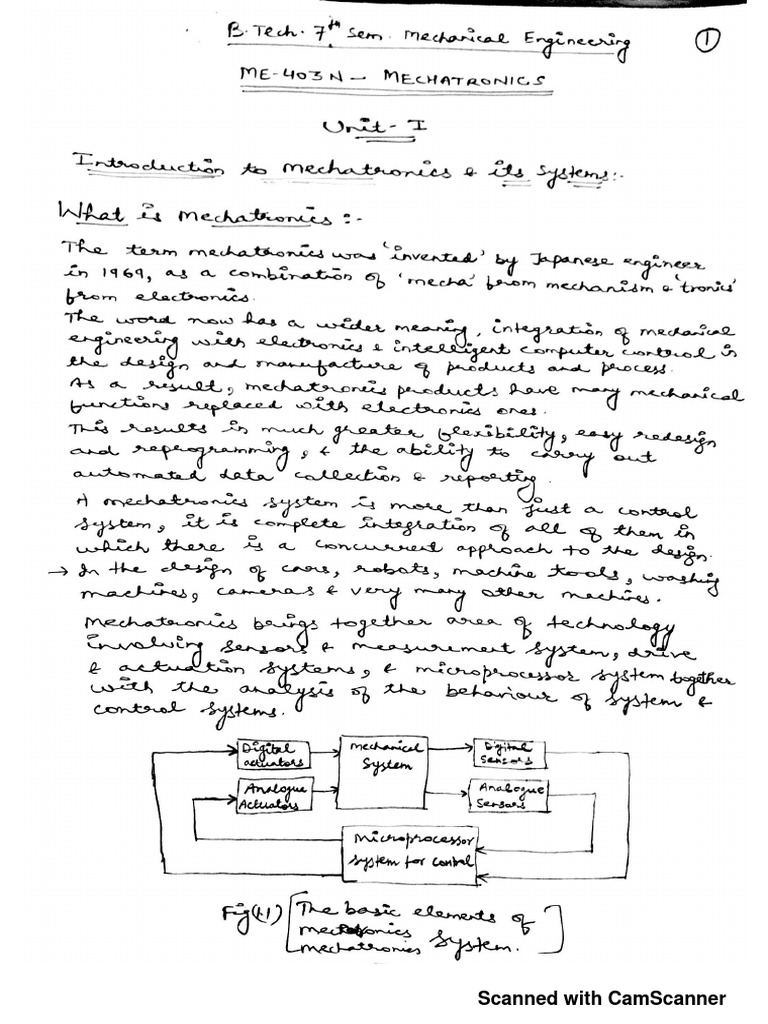 B.Tech. 7th Sem. Mechanical Engineering
1
ME-403N - MECHATRONICS
Unit-I
Introduction to Mechatronics & its Systems:-
What is Mechatronics:-
The term mechatronics was 'invented' by Japanese engineer
in 1969, as a combination of 'mecha' from mechanism & 'tronics'
from electronics.
The word now has a wider meaning, integration of mechanical
engineering with electronics & intelligent computer control in
the design and manufacture of products and process.
As a result, mechatroncis products have many mechanical
functions replaced with electronics ones.
This results in much greater flexibility, easy redesign
and reprogramming, & the ability to carry out
automated data collection & reporting.
A mechatronics system is more than just a control
system, it is complete integration of all of them in
which there is a concurrent approach to the design.
→ In the design of cars, robots, machine tools, washing
machines, cameras & very many other machines.
Mechatronics brings together area of technology
involving sensors & measurement system, drive
& actuation systems, & microprocessor system together
with the analysis of the behaviour of system &
control systems.
Digital
actuators
Mechanical
System
Digital
Sensors
Analogue
Actuators
Analogue
Sensors
Microprocessor
system for control
Fig(1.1) [The basic elements of
mechatronics System.]
Scanned with CamScanner